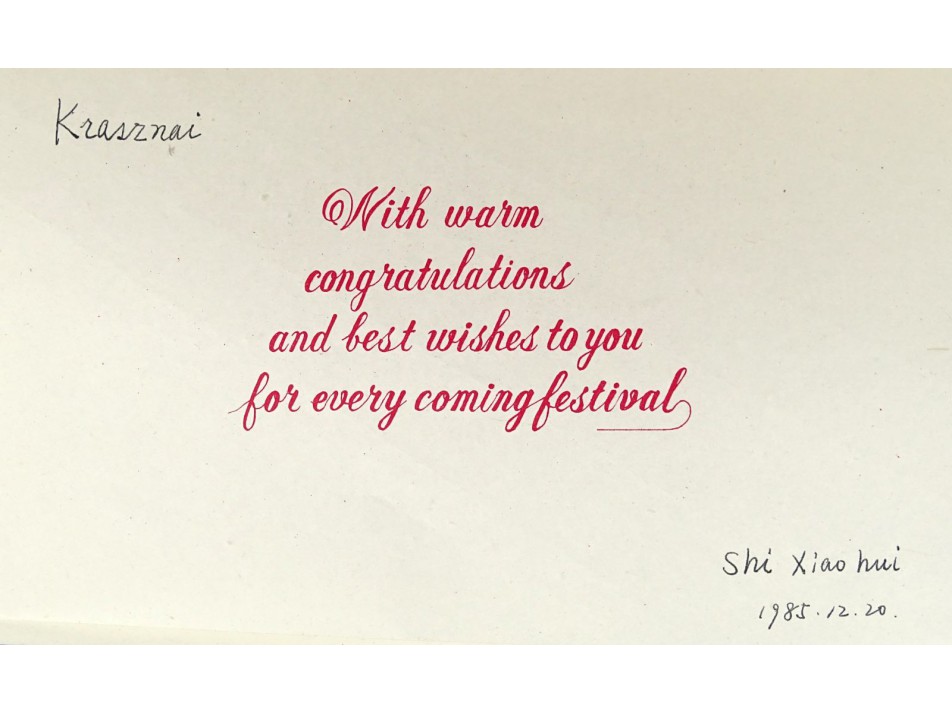 Krasznai
With warm
congratulations
and best wishes to you
for every coming festival
Shi Xiao hui
1985.12.20.